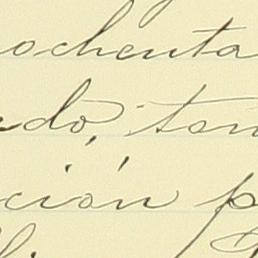 ochenta
do, ten
ción p